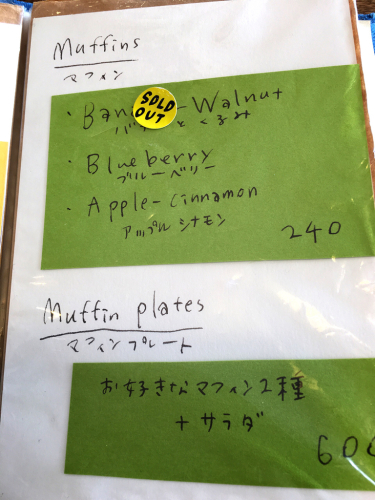 Muffins
マフィン
SOLD OUT
・Ban -Walnut
バ と くるみ
・Blueberry
ブルーベリー
・Apple-cinnamon
アップルシナモン
240
Muffin plates
マフィンプレート
お好きなマフィン2種
+ サラダ
60